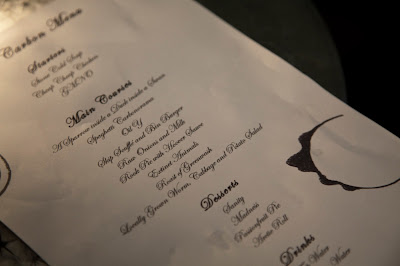 Carbon Menu
Starters
Stone Cold Soup
Cheap Cheap Chicken
GMNO
Main Courses
A Sparrow inside a Duck inside a Swan
Spaghetti Carbonarama
Oil Y
Skip Soufflé and Bin Burger
Raw Onions and Milk
Rock Pie with House Sauce
Extinct Animals
Roast of Greenwash
Locally Grown Worm, Cabbage and Potato Salad
Desserts
Sanity
Madness
Passionfruit Pie
Arctic Roll
Drinks
Water
Water